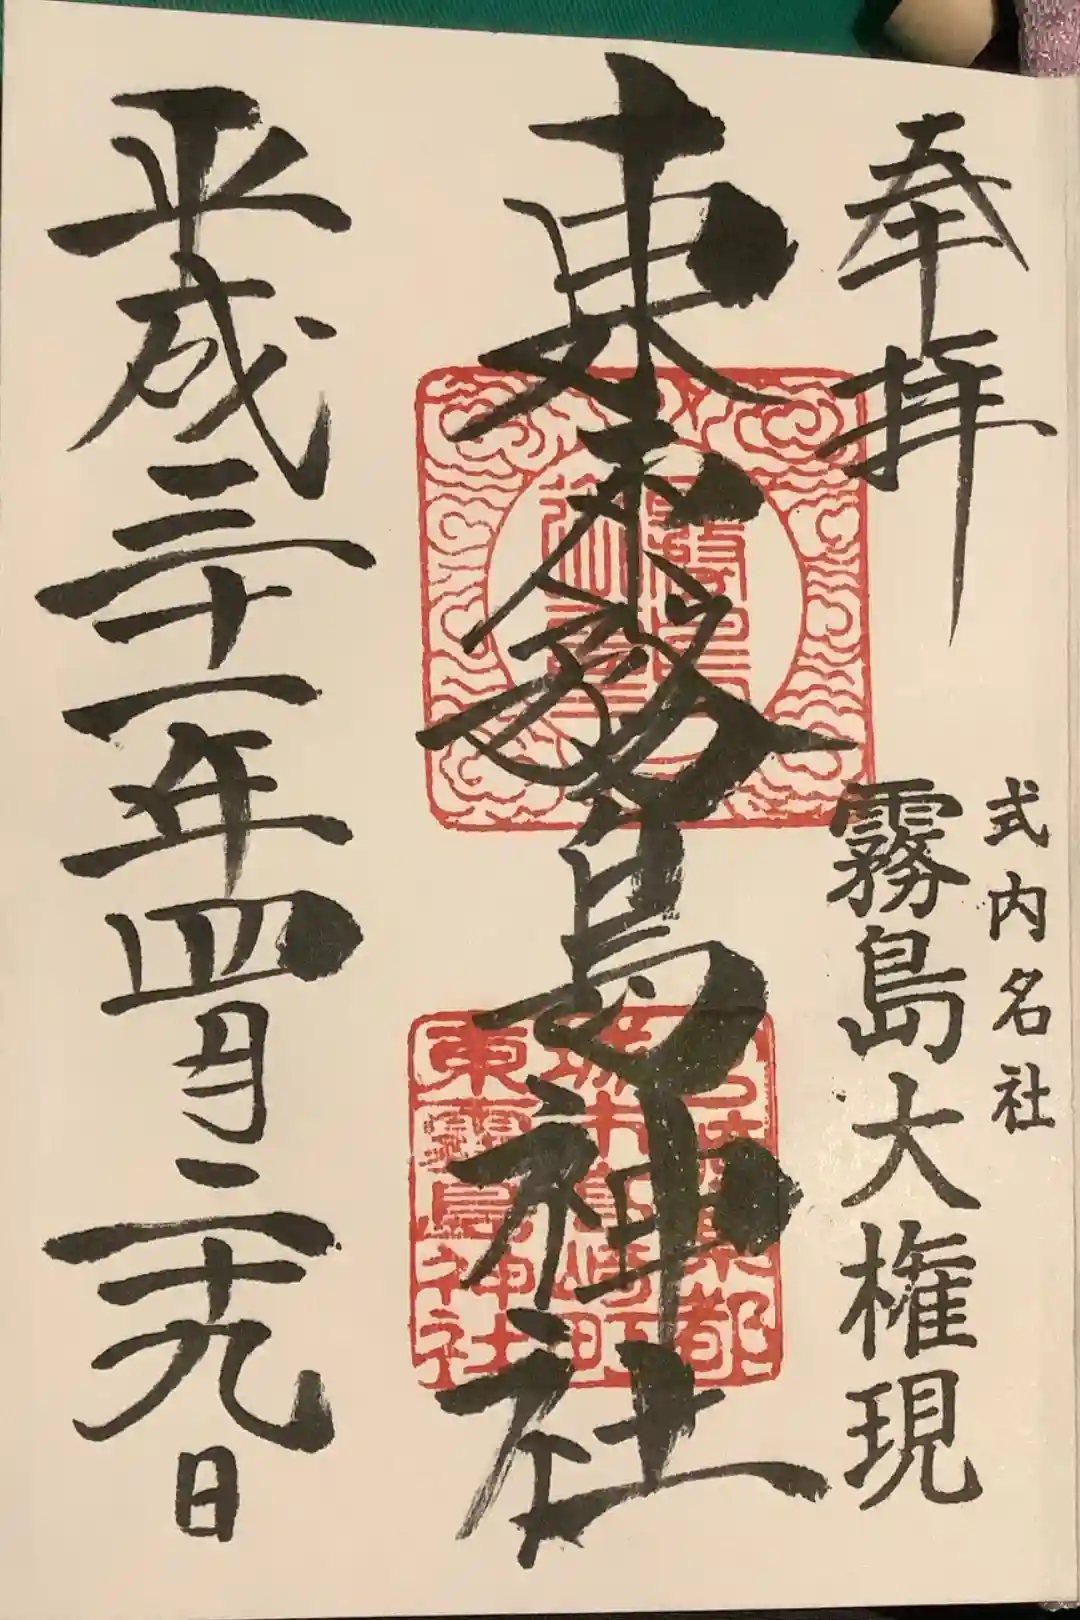 奉拝
式内名社
霧島大権現
東霧島神社
都
城市高崎町
東霧島神社
平成三十一年四月二十九日